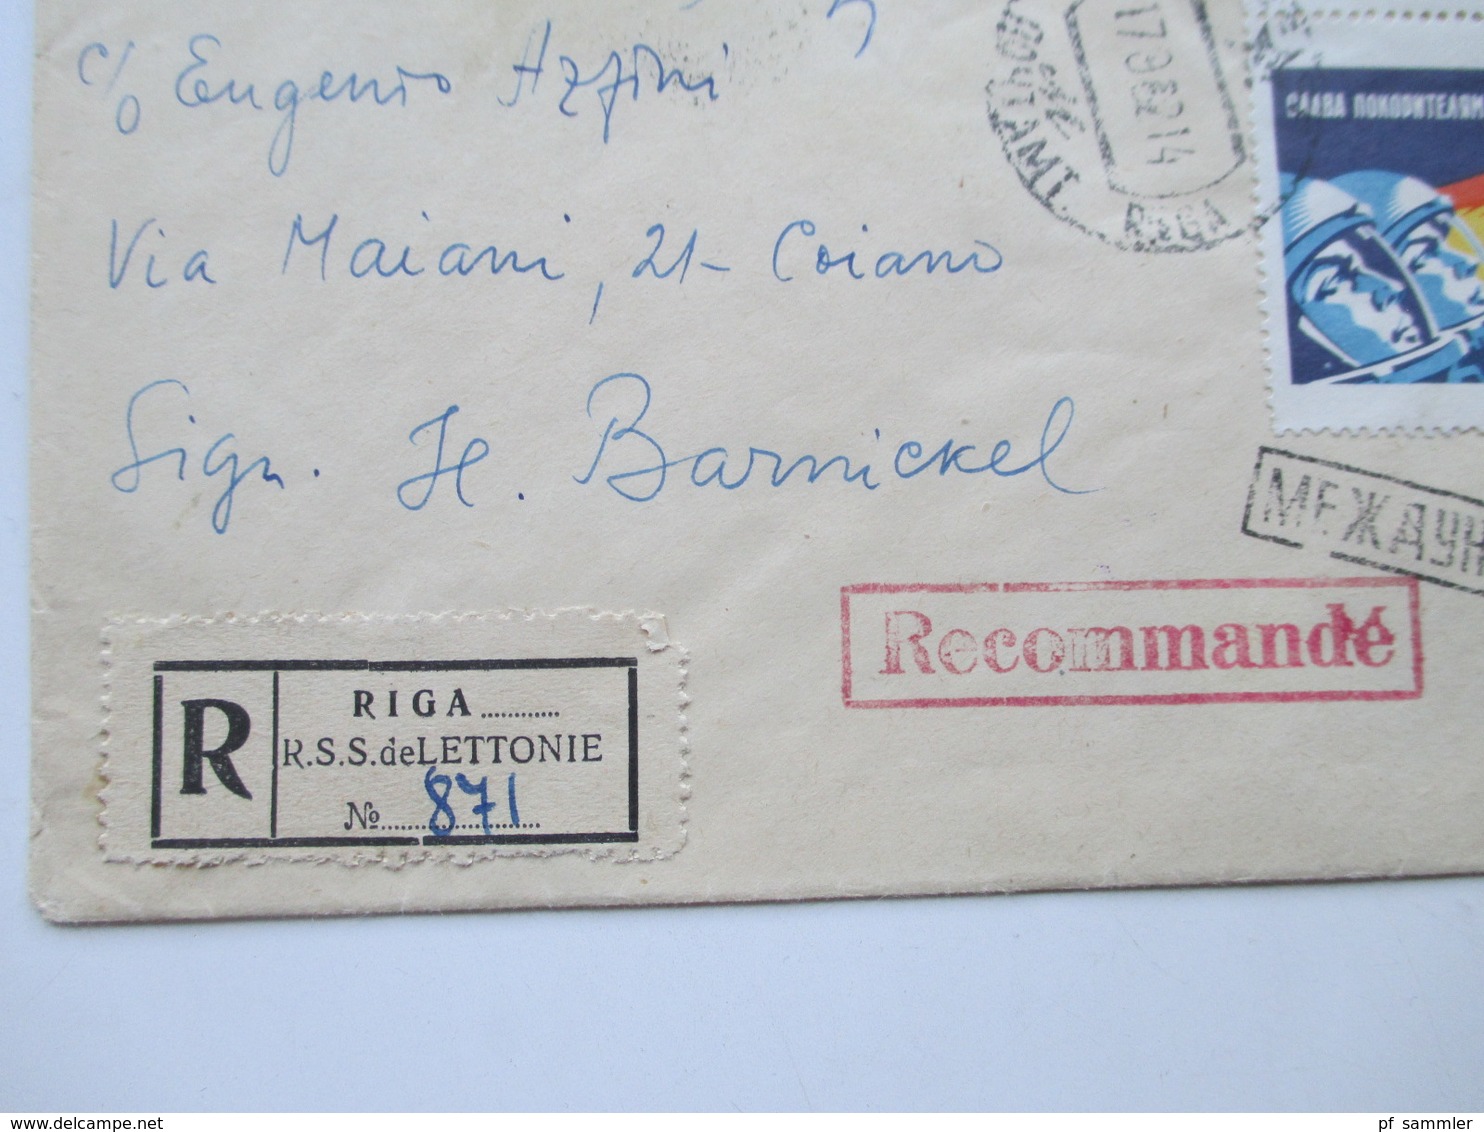 c/o Eugenio Azzini
Via Maiani, 21- Coiano
Sign. H. Barnickel
17 9 62 14
RIGA
СЛАВА ПОКОРИТЕЛЯМ
МЕЖДУН
Recommandé
R
RIGA
R.S.S.deLETTONIE
№ 871
pf sammler